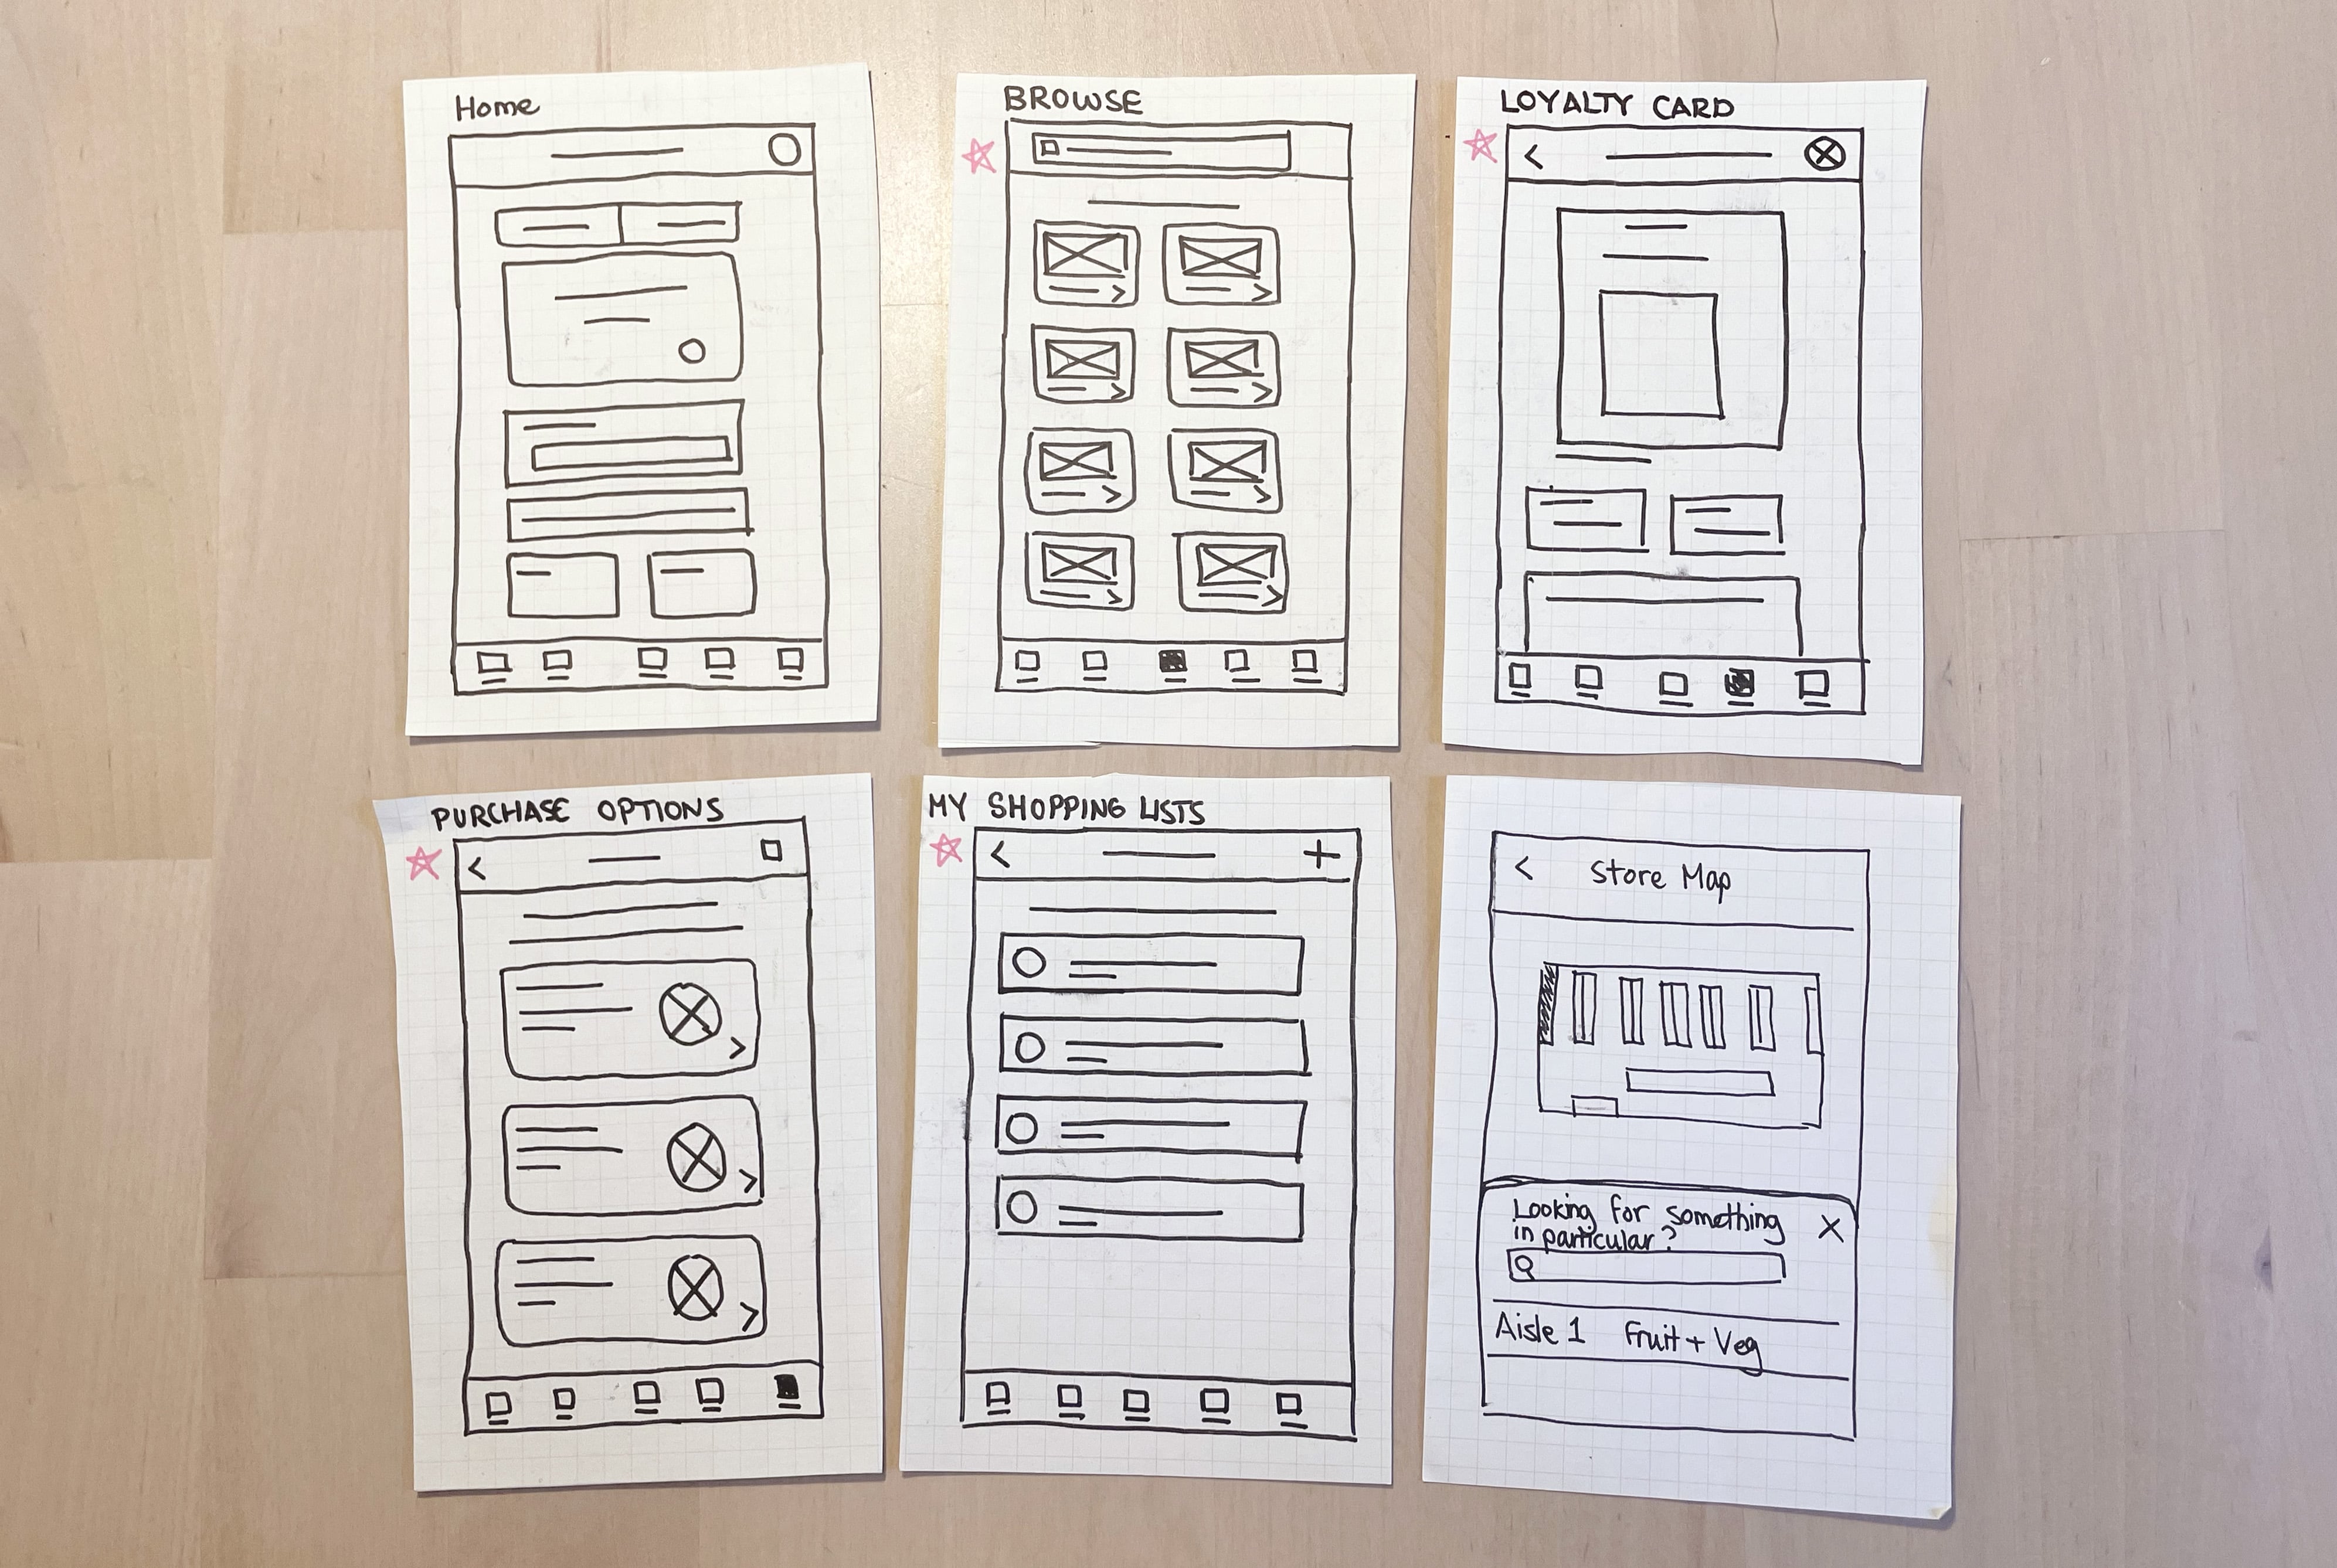 Home
BROWSE
LOYALTY CARD
PURCHASE OPTIONS
MY SHOPPING LISTS
Store Map
Looking for something
in particular?
Aisle 1 Fruit + Veg